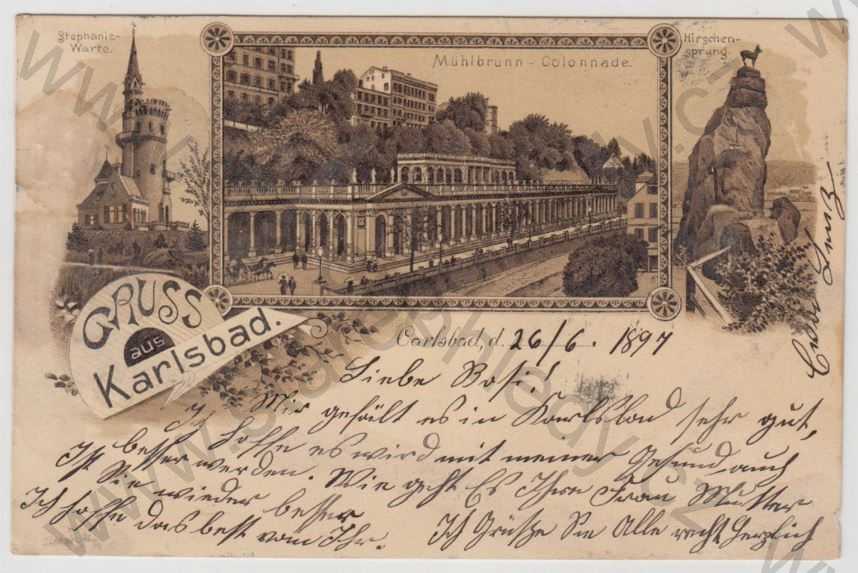 Stephanie-
Warte.
Mühlbrunn-Colonnade.
Hirschen-
sprung.
GRUSS
aus
Karlsbad.
Carlsbad, d. 26/6. 1897
Liebe Rosi!
Mir gefält es in Karlsbad sehr gut,
Ich hoffe es wird mit meiner Gesund auch
besser werden. Wie geht Es Ihrer Frau Mutter
Ist Sie wieder besser
Ich hoffe das best vom Ihr. Ich Grüße Sie Alle recht herzlich
www.stare-pohledy.cz